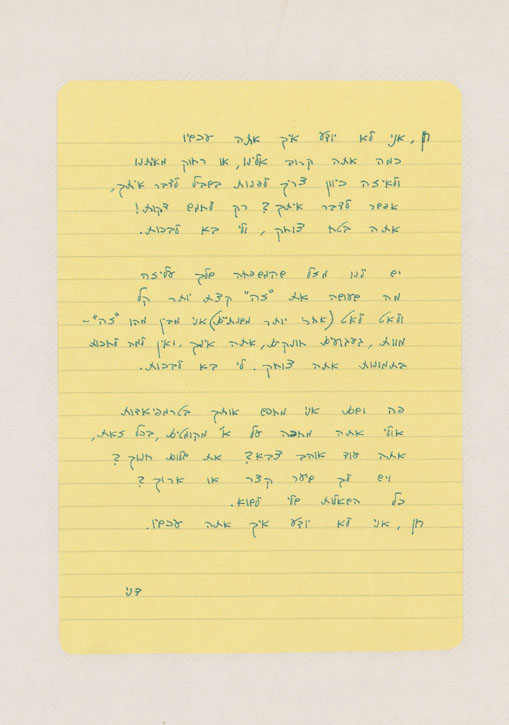 חן, אני לא יודע איך אתה עכשיו
כמה אתה קרוב אלינו, או רחוק מאיתנו
ולאיזה כיוון צריך לפנות בשביל לדבר איתך,
אפשר לדבר איתך? רק לחמש דקות!
אתה בטח צוחק, ולי בא לבכות.
יש לנו מזל שהמשפחה שלך עליזה
מה שעושה את "זה" קצת יותר קל
ולאט לאט (אחרי יותר משנתיים) אני מבין מהו "זה" -
מוות, געגועים חונקים, אתה אינך. ואין למה לחכות
בתמונות אתה צוחק. לי בא לבכות.
פה ושם אני מחפש אותך בטרמפיאדות
אולי אתה מחכה על א' מקומטים, בכל זאת,
אתה עוד אוהב צבא? את שלום חנוך?
ויש לך שיער קצר או ארוך?
כל השאלות שלי לשוא.
חן, אני לא יודע איך אתה עכשיו.
דני